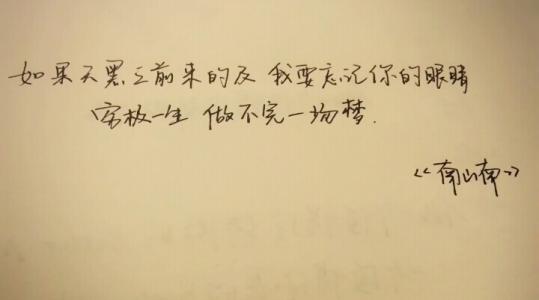 如果天黑之前来的及 我要忘记你的眼睛
穷极一生 做不完一场梦.
《南山南》